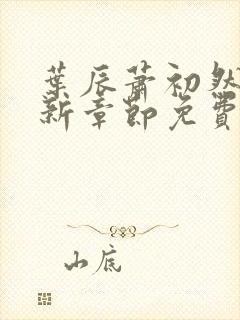 葉辰蕭初然
新章節免費
山底